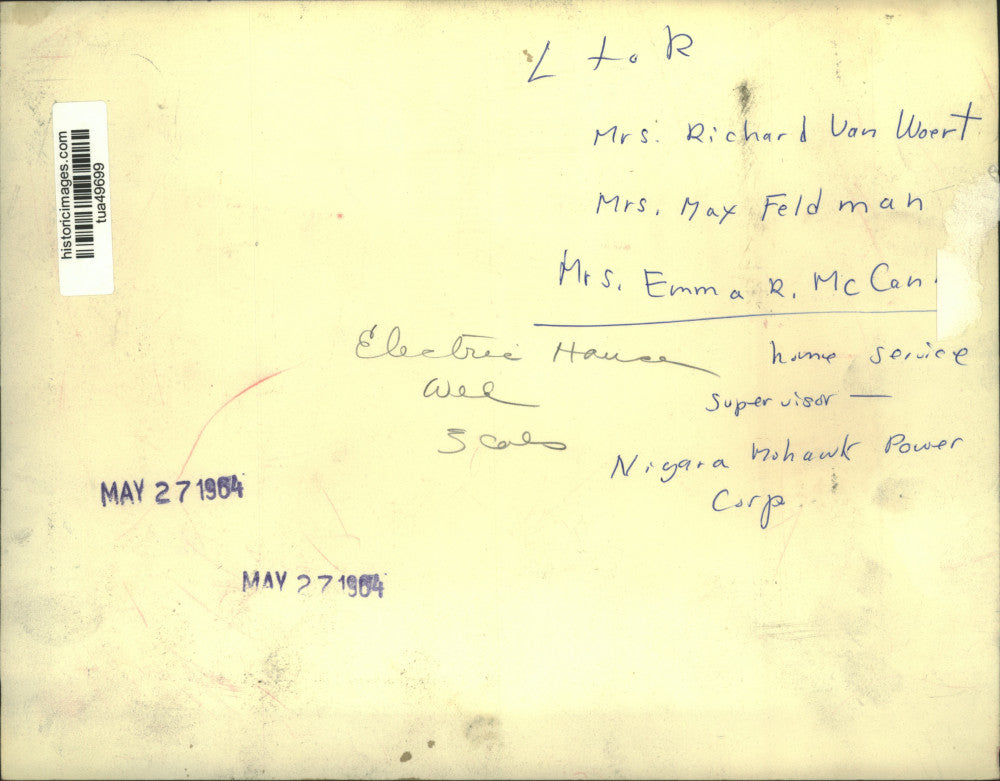 L to R
Mrs. Richard Van Woert
Mrs. Max Feldman
Mrs. Emma R. McCan
home service
supervisor —
Nigara Mohawk Power
Corp
Electric House
Wed
3 cols
historicimages.com
tua49699
MAY 27 1964
MAY 27 1964